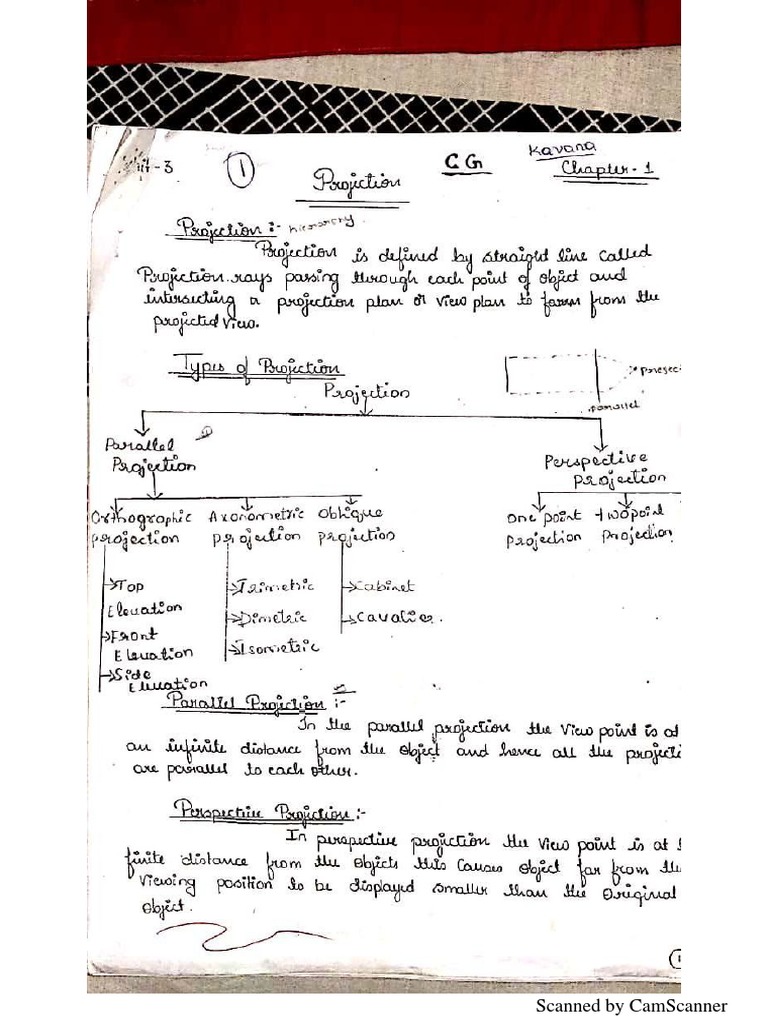 it-3
1
CG
Kavana
Chapter-1
Projection
Projection :- hierarchy
Projection is defined by straight line called
Projection rays passing through each point of object and
intersecting a projection plan or view plan to form from the
projected view.
Types of Projection
Projection
parallel
Parallel
Projection
Perspective
projection
Orthographic Axonometric Oblique
projection projection projection
One point two point
projection projection
Top
Elevation
Front
Elevation
Side
Elevation
Trimetric
Dimetric
Isometric
Cabinet
Cavalier.
Parallel Projection :-
In the parallel projection the view point is at
an infinite distance from the object and hence all the projecti
are parallel to each other.
Perspective Projection :-
In perspective projection the view point is at
finite distance from the objects this causes object far from the
viewing position to be displayed smaller than the original
object.
Scanned by CamScanner